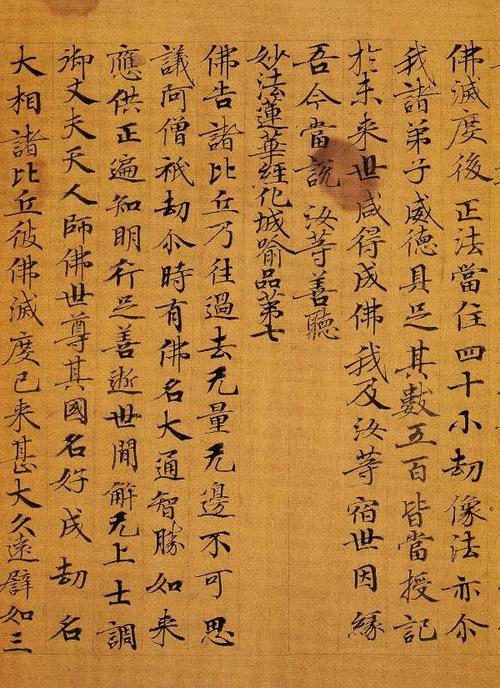 佛滅度後正法當住四十小劫像法亦尒
我諸弟子威德具足其數五百皆當授記
於未来世咸得成佛我及汝等宿世因縁
吾今當說汝等善聽
妙法蓮華經化城喻品第七
佛告諸比丘乃往過去无量无邊不可思
議阿僧祇劫尒時有佛名大通智勝如来
應供正遍知明行足善逝世間解无上士調
御丈夫天人師佛世尊其國名好成劫名
大相諸比丘彼佛滅度已来甚大久遠譬如三